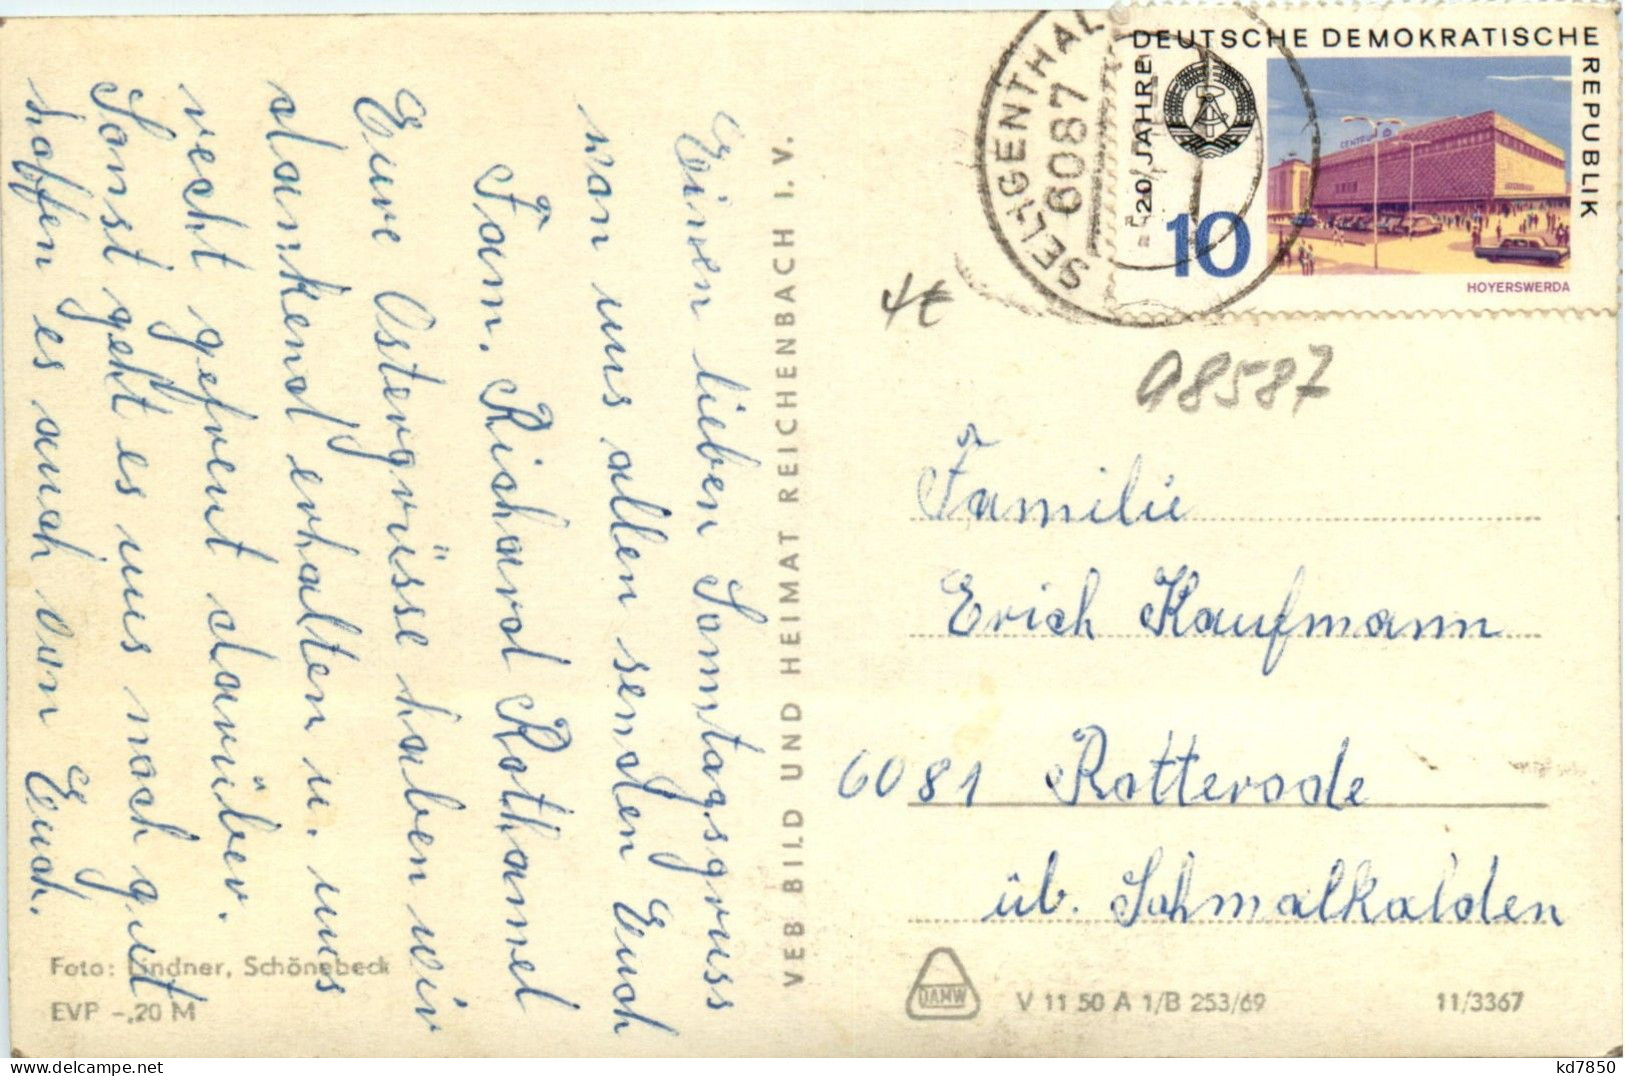 Einen lieben Samstagsgruss
von uns allen senden Euch
Fam. Richard Rothamel
Eure Ostergrüsse haben wir
dankend erhalten u. uns
recht gefreut darüber.
Sonst geht es uns noch gut
hoffen es auch von Euch.
Foto: Lindner, Schönebeck
EVP -,20 M
VEB BILD UND HEIMAT REICHENBACH I. V.
SELIGENTHAL
6087
DEUTSCHE DEMOKRATISCHE
REPUBLIK
20 JAHRE
CENTRUM
10
HOYERSWERDA
4€
A8587
Familie
Erich Kaufmann
6081 Rotterode
üb. Schmalkalden
DAMW
V 11 50 A 1/B 253/69
11/3367
kd7850